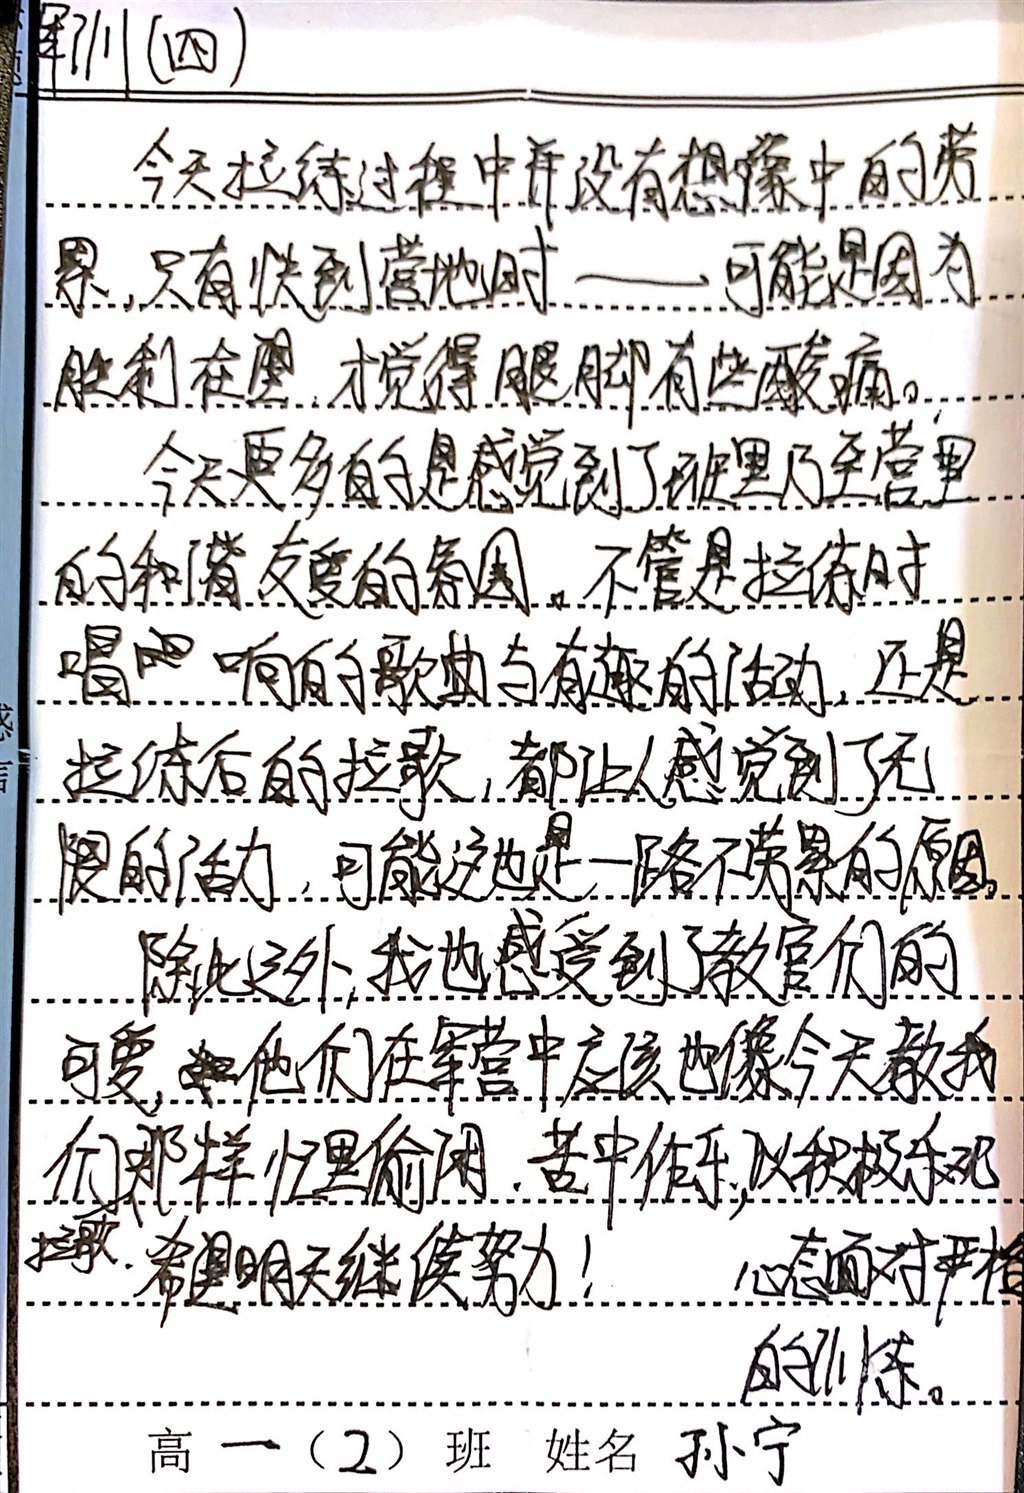 军训(四)
今天拉练过程中并没有想像中的劳
累,只有快到营地时——可能是因为
胜利在望,才觉得腿脚有些酸痛。
今天更多的是感觉到了班里乃至营里
的和谐友爱的氛围。不管是拉练时
唱吧响的歌曲与有趣的活动,还是
拉练后的拉歌,都让人感觉到了无
限的活力,可能这也是一路不劳累的原因。
除此之外,我也感受到了教官们的
可爱,他们在军营中应该也像今天教我
们那样忙里偷闲、苦中作乐,以积极乐观
拉歌、希望明天继续努力! 心态面对严格
的训练。
高一(2)班 姓名 孙宁